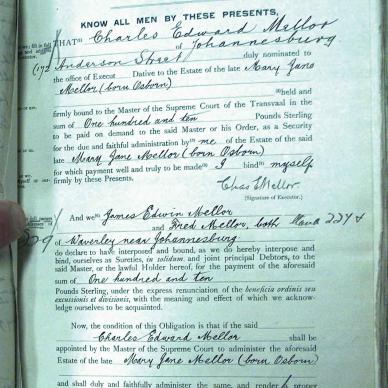 KNOW ALL MEN BY THESE PRESENTS,
THAT Charles Edward Mellor
(172 Anderson Street of Johannesburg
duly nominated to
the office of Execut Dative to the Estate of the late Mary Jane
Mellor (born Osborn)
held and
firmly bound to the Master of the Supreme Court of the Transvaal in the
sum of One hundred and ten Pounds Sterling
to be paid on demand to the said Master or his Order, as a Security
for the due and faithful administration by me of the Estate of the said
late Mary Jane Mellor (born Osborn)
for which payment well and truly to be made I bind myself
firmly by these Presents.
Chas E Mellor.
[Signature of Executor.]
And we James Edwin Mellor
and Fred Mellor, both
of Waverley near Johannesburg
do declare to have interposed and bound, as we do hereby interpose and
bind, ourselves as Sureties, in solidum, and joint principal Debtors, to the
said Master, or the lawful Holder hereof, for the payment of the aforesaid
sum of One hundred and ten
Pounds Sterling, under the express renunciation of the beneficia ordinis seu
excussionis et divisionis, with the meaning and effect of which we acknow-
ledge ourselves to be acquainted.
Now, the condition of this Obligation is that if the said
Charles Edward Mellor shall be
appointed by the Master of the Supreme Court to administer the aforesaid
Estate of the late Mary Jane Mellor (born Osborn)
and shall duly and faithfully administer the same, and render proper